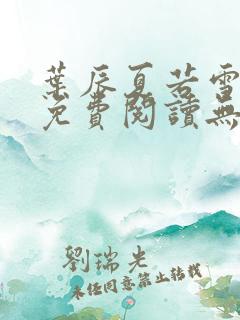 葉辰夏若雪
免費閱讀無
劉瑞光
未經同意禁止轉載